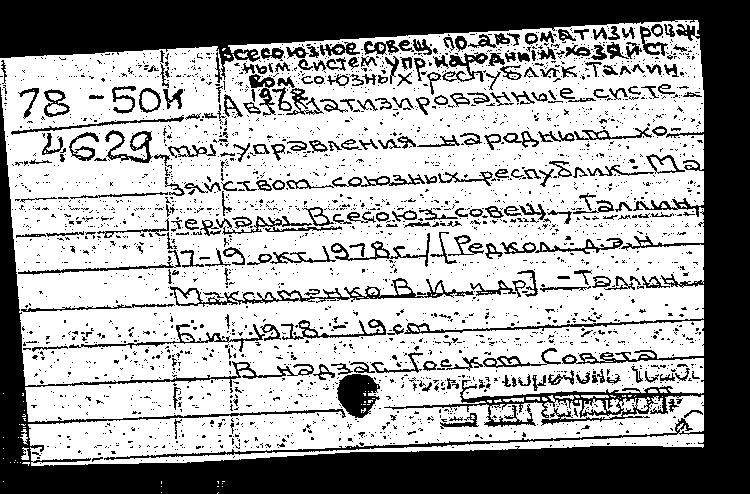 Всесоюзное совещ. по автоматизирован
ным систем упр. народным хозяйст-
вом союзных республик. Таллин.
1978
78-50к
4629
Автоматизированные систе-
мы управления народным хо-
зяйством союзных республик: Ма
териалы Всесоюз. совещ., Таллин,
17-19 окт. 1978 г. / [Редкол.: д.э.н.
Максименко В.И. и др]. - Таллин:
Б.и., 1978. - 19 cm
В надзаг: Гос. ком. Совета